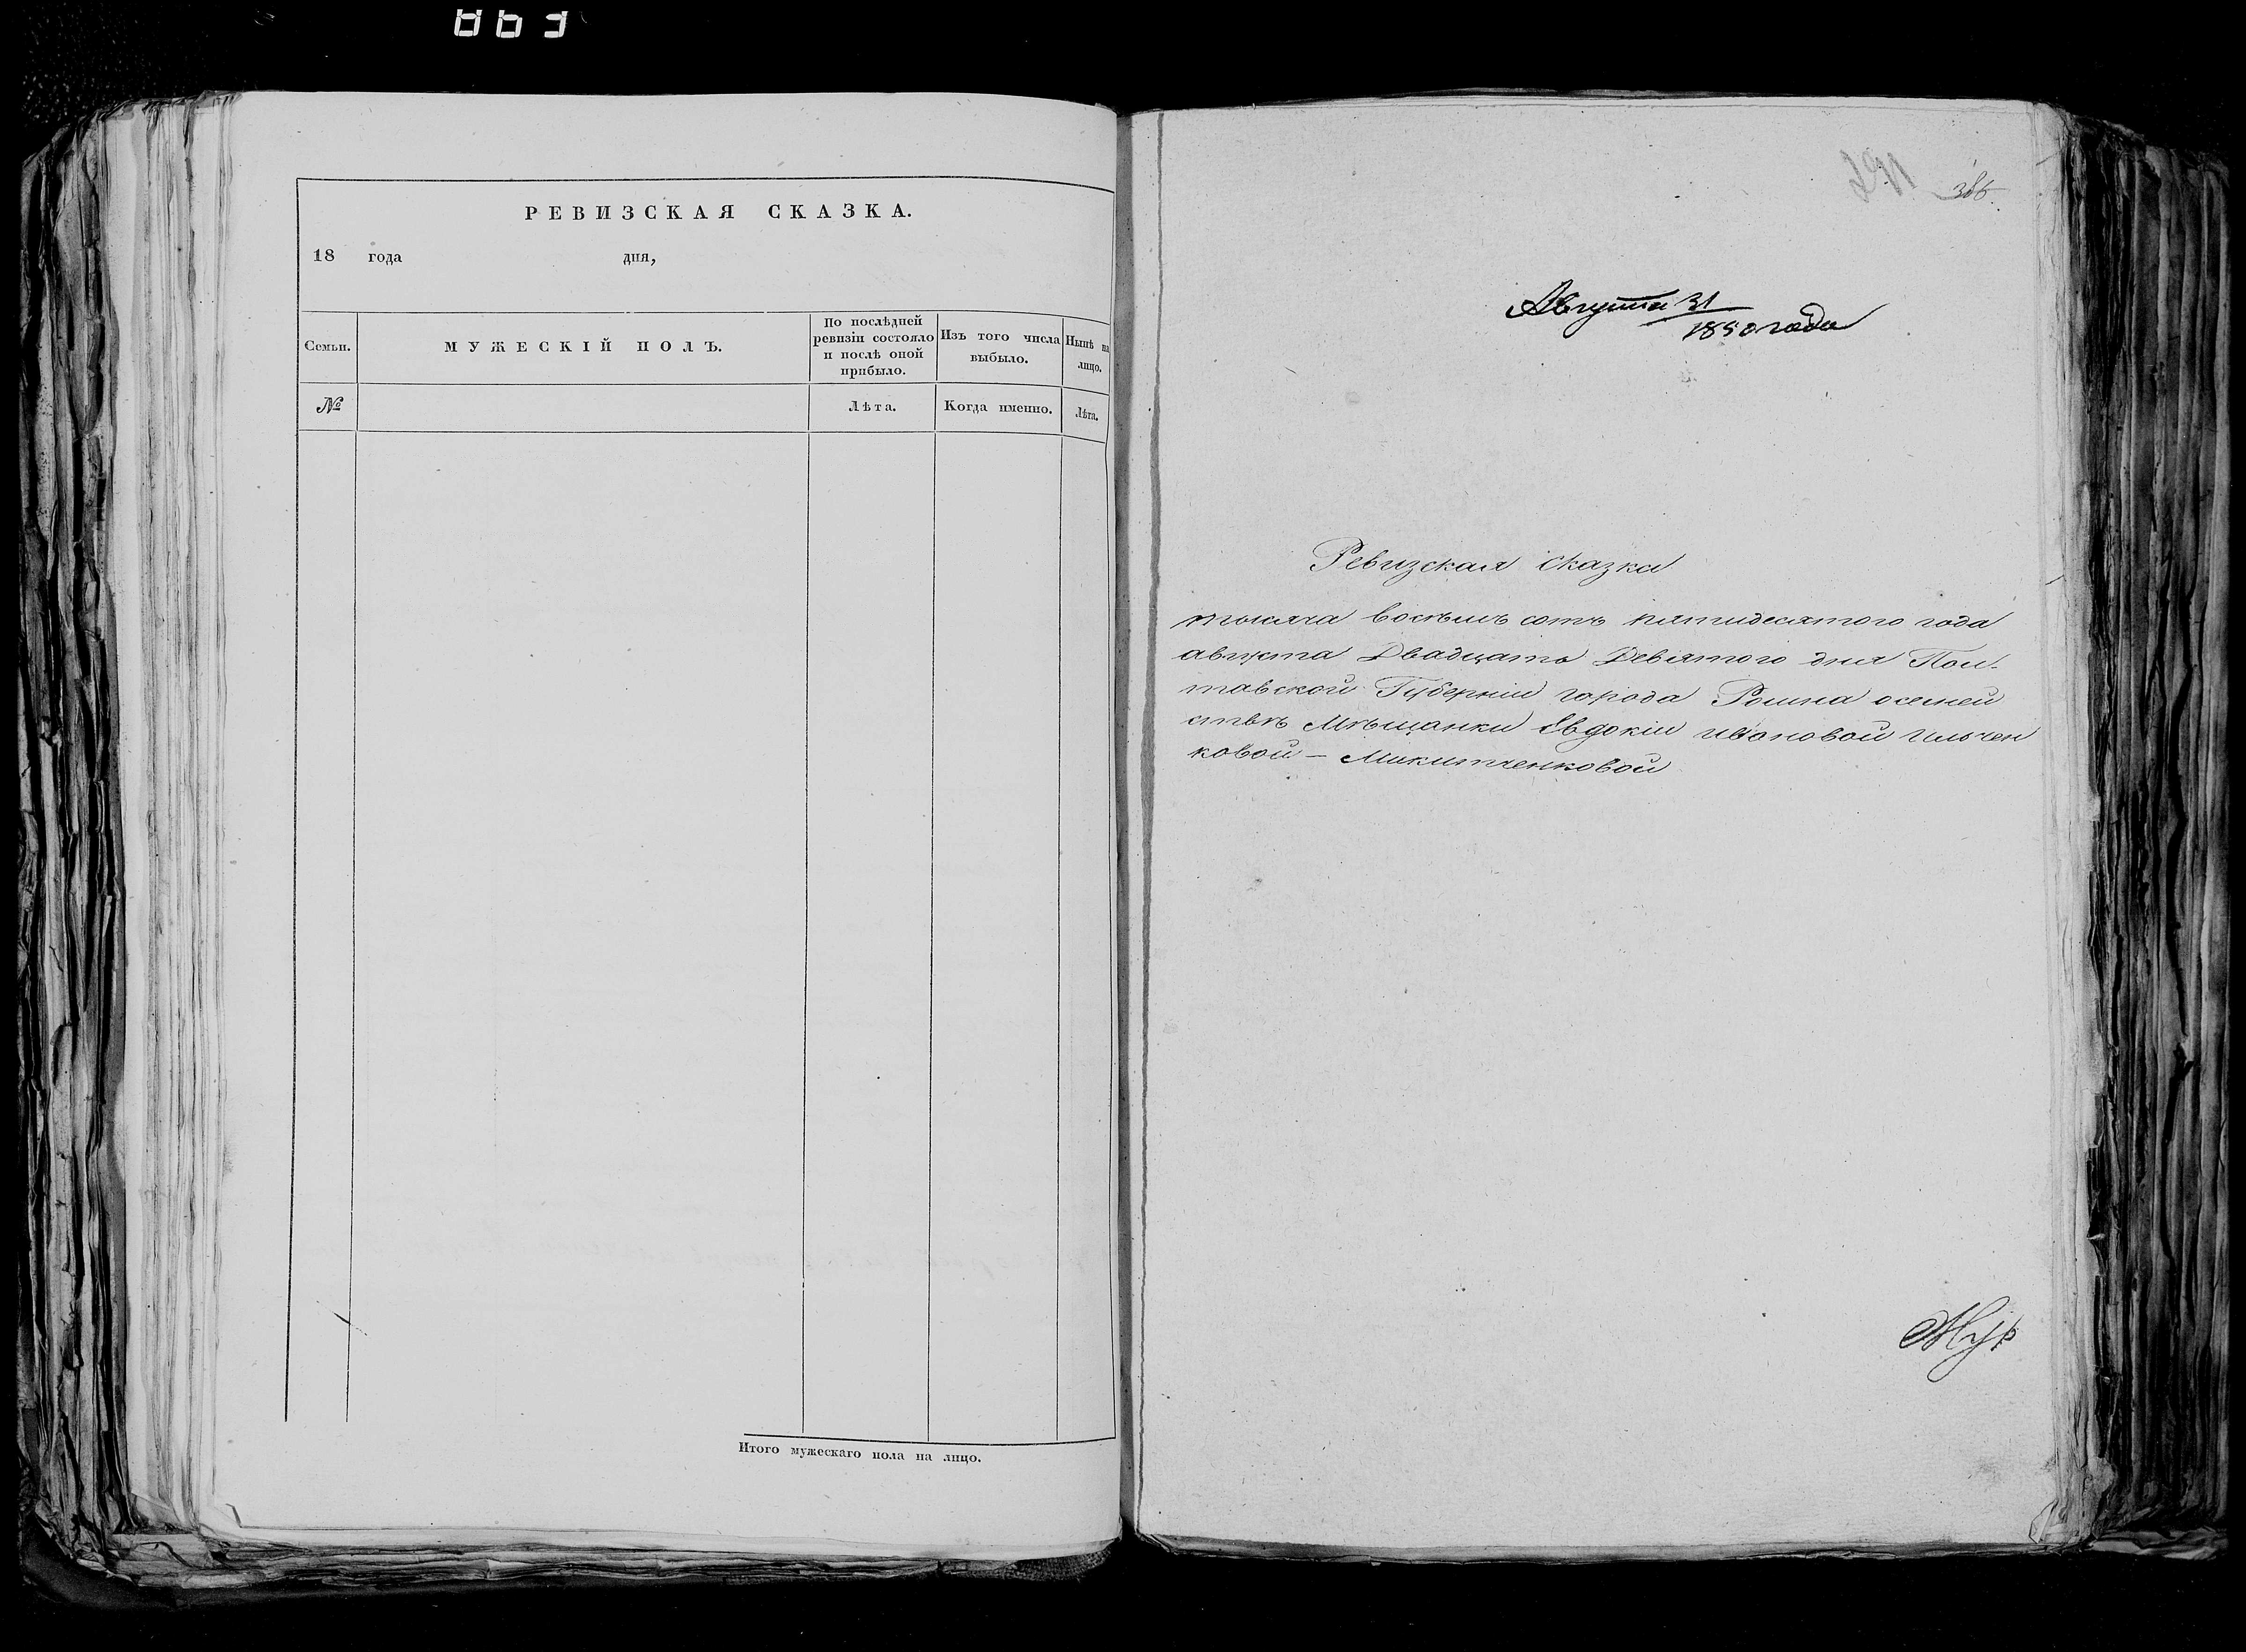 РЕВИЗСКАЯ СКАЗКА.
18 года дня,
Семьи.
МУЖЕСКІЙ ПОЛЪ.
По послѣдней
ревизіи состояло
и послѣ оной
прибыло.
Изъ того числа
выбыло.
Нынѣ на
лицо.
№
Лѣта.
Когда именно.
Лѣта.
Итого мужескаго пола на лицо.
386.
Августа 31
1850 года
Ревизская сказка
тысяча восѣмъ сотъ пятидесятого года
августа Двадцать Девятого дня Пол-
тавской Губерніи города Ромна осемей
ствѣ Мѣщанки Евдокіи Ивановой Ильчен
ковой - Микитченковой